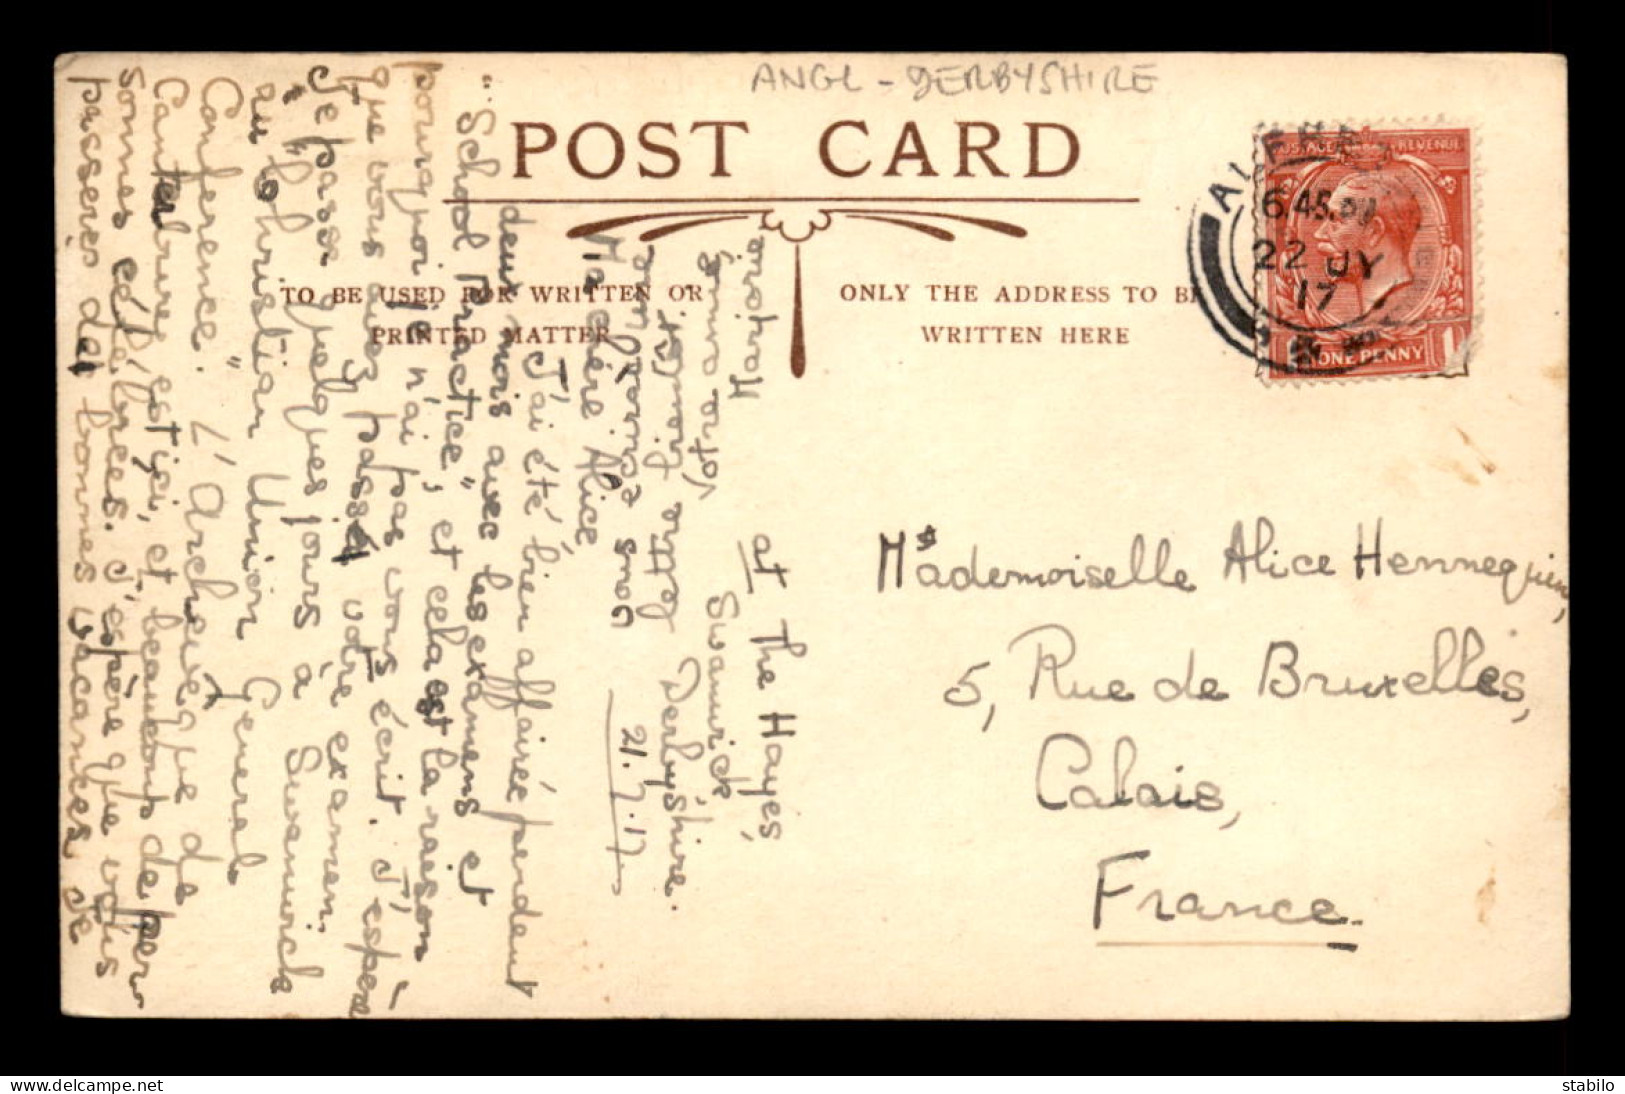 ANGL - DERBYSHIRE
POST CARD
TO BE USED FOR WRITTEN OR
PRINTED MATTER
ONLY THE ADDRESS TO BE
WRITTEN HERE
POSTAGE REVENUE
ONE PENNY 1
6.45 PM
22 JY
17
Mademoiselle Alice Hennequin,
5, Rue de Bruxelles,
Calais,
France.
at The Hayes,
Swanwick,
Derbyshire.
21.7.17
Ma chère Alice
J'ai été bien affairée pendant
deux mois avec les examens et
"School Practice", et cela est la raison
pourquoi je n'ai pas vous écrit. J'espère
que vous avez passé votre examen.
Je passe quelques jours à Swanwick
au "Christian Union General
Conference." L'Archevêque de
Canterbury est ici, et beaucoup de per-
sonnes célèbres. J'espère que vous
passerez des bonnes vacances. Je
Marjorie
stabilo
www.delcampe.net